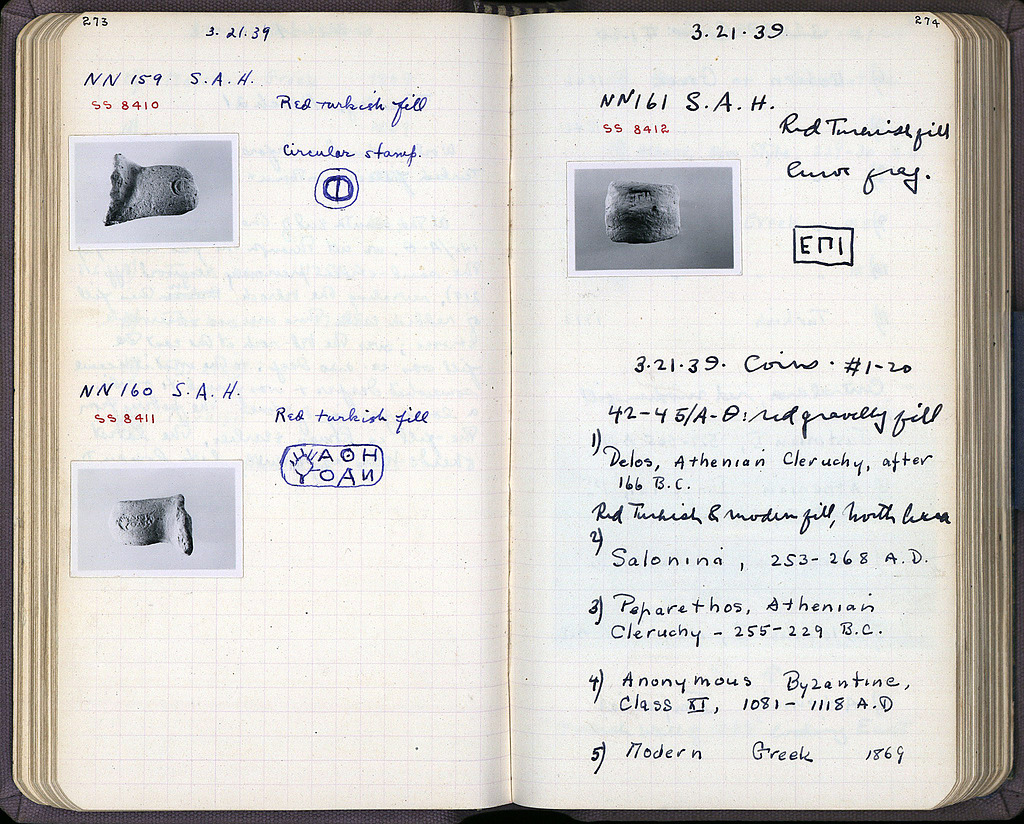 273
3.21.39
NN 159 S.A.H.
SS 8410
Red turkish fill
Circular stamp.
NN 160 S.A.H.
SS 8411
Red turkish fill
ΑΘΗ
ΥΟΔΝ
274
3.21.39
NN 161 S.A.H.
SS 8412
Red Turkish fill
frag.
ΕΠΙ
3.21.39. Coins. #1-20
42-45/A-Θ: red gravelly fill
1) Delos, Athenian Cleruchy, after
166 B.C.
Red Turkish & modern fill, North Area
2) Salonina, 253-268 A.D.
3) Peparethos, Athenian
Cleruchy - 255-229 B.C.
4) Anonymous Byzantine,
Class XI, 1081-1118 A.D
5) Modern Greek 1869